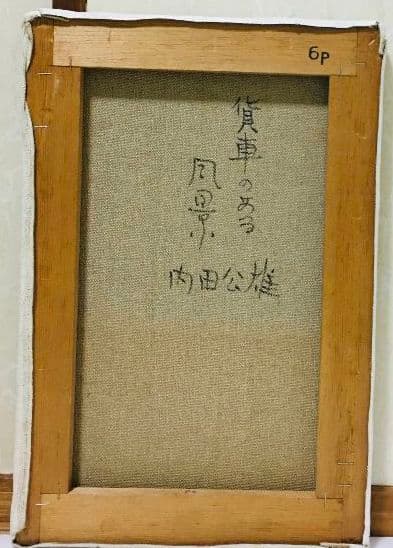 6P
貨車のある
風景
内田公雄